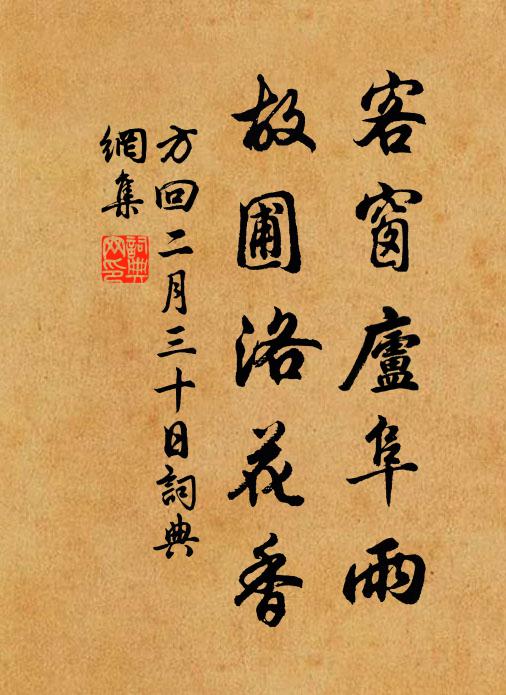 客窗廬阜雨
故圃洛花香
方回二月三十日詞典
網集
詞典網印